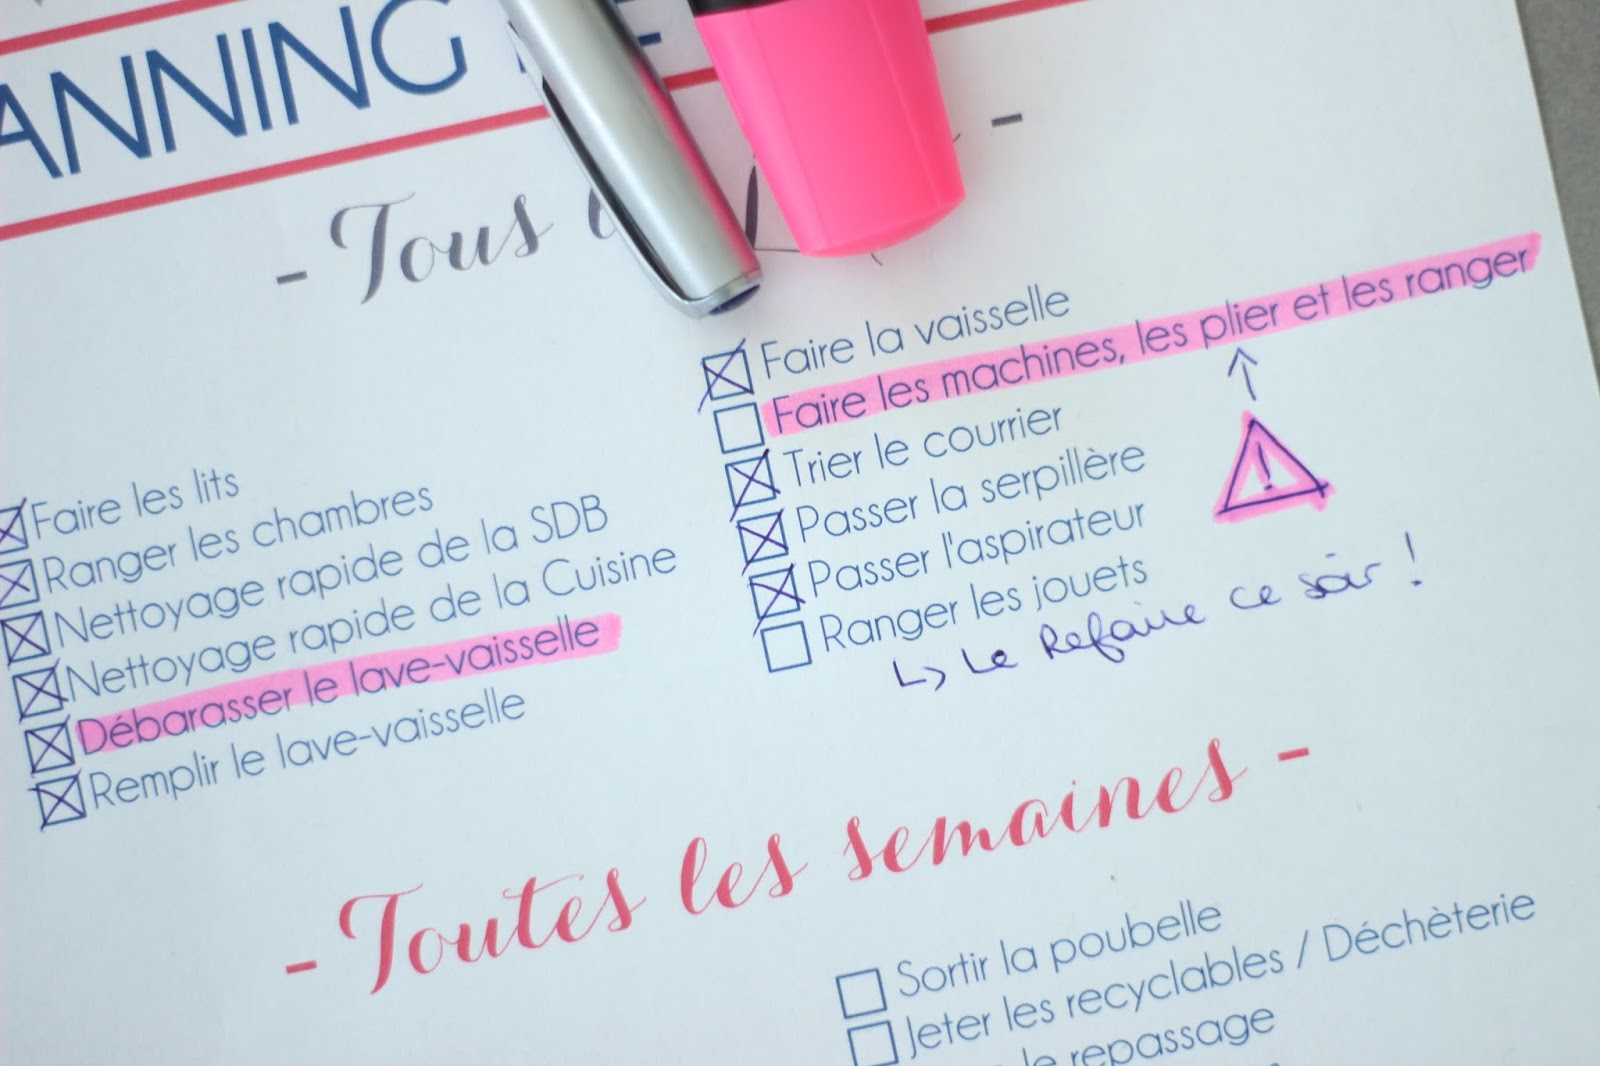 ANNING
- Tous
Faire les lits
Ranger les chambres
Nettoyage rapide de la SDB
Nettoyage rapide de la Cuisine
Débarasser le lave-vaisselle
Remplir le lave-vaisselle
Faire la vaisselle
Faire les machines, les plier et les ranger
Trier le courrier
Passer la serpillère
Passer l'aspirateur
Ranger les jouets
!
↳ Le Refaire ce soir !
- Toutes les semaines -
Sortir la poubelle
Jeter les recyclables / Déchèterie
le repassage